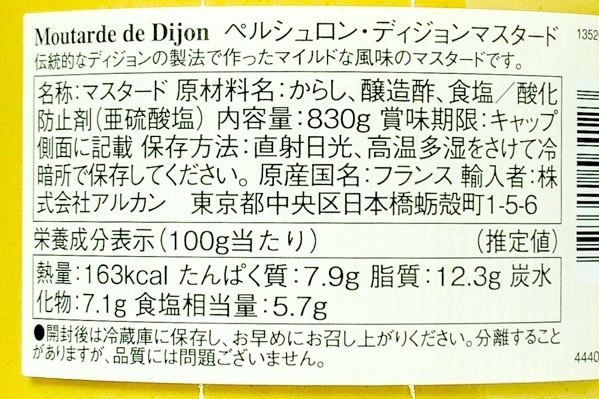 Moutarde de Dijon ペルシュロン・ディジョンマスタード
伝統的なディジョンの製法で作ったマイルドな風味のマスタードです。
名称:マスタード 原材料名:からし、醸造酢、食塩/酸化
防止剤(亜硫酸塩) 内容量:830g 賞味期限:キャップ
側面に記載 保存方法:直射日光、高温多湿をさけて冷
暗所で保存してください。 原産国名:フランス 輸入者:株
式会社アルカン 東京都中央区日本橋蛎殻町1-5-6
栄養成分表示(100g当たり) (推定値)
熱量:163kcal たんぱく質:7.9g 脂質:12.3g 炭水
化物:7.1g 食塩相当量:5.7g
●開封後は冷蔵庫に保存し、お早めにお召し上がりください。分離すること
がありますが、品質には問題ございません。
1352
4440